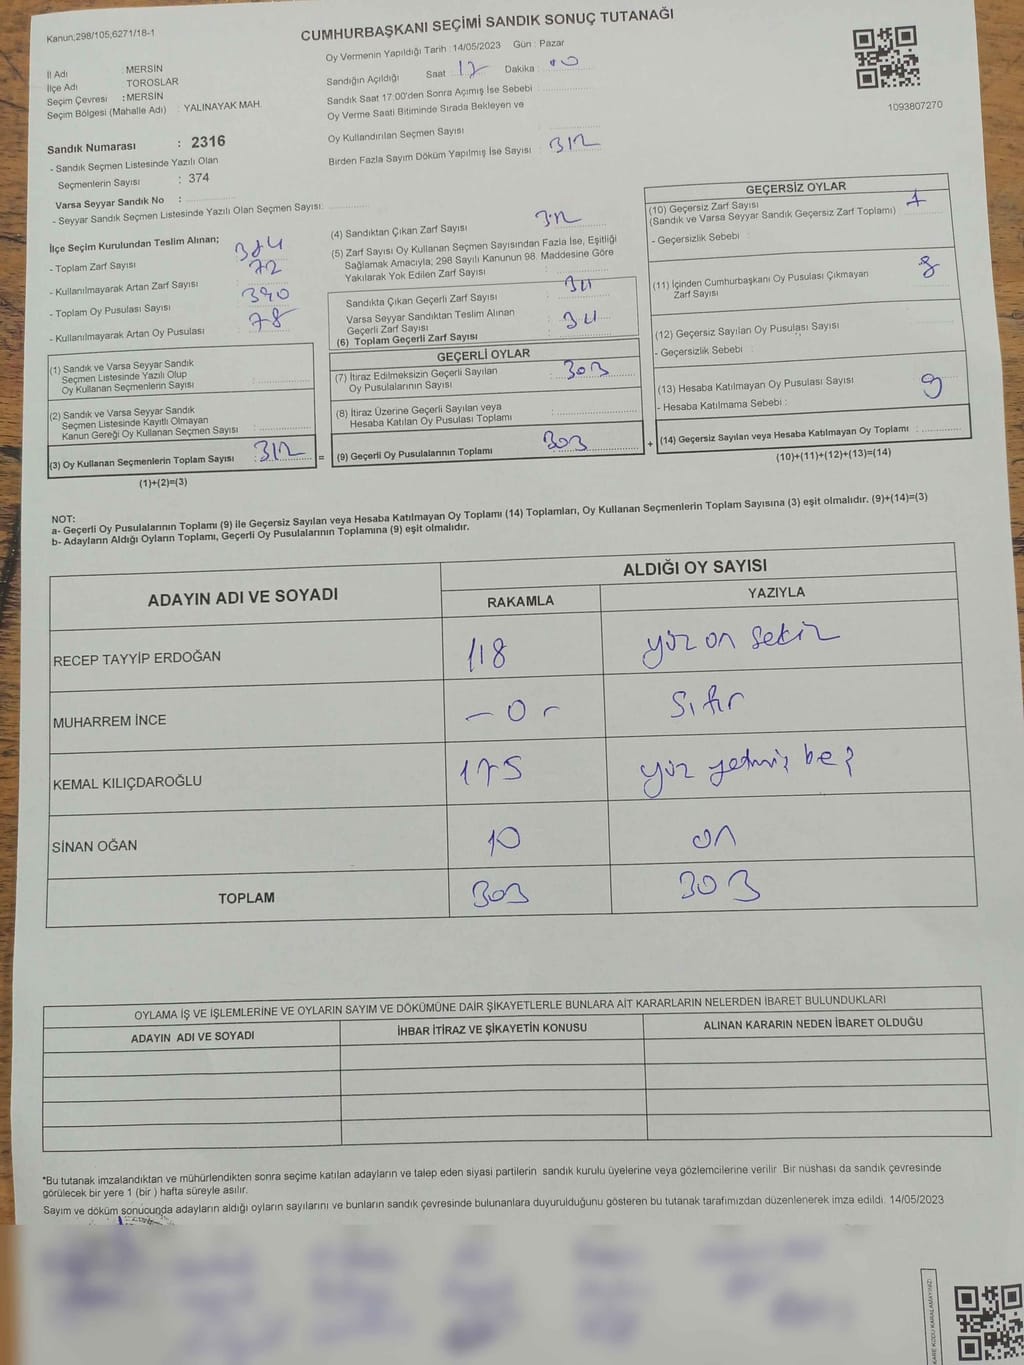 Kanun;298/105;6271/18-1
CUMHURBAŞKANI SEÇİMİ SANDIK SONUÇ TUTANAĞI
İl Adı : MERSİN
İlçe Adı TOROSLAR
Seçim Çevresi : MERSİN
Seçim Bölgesi (Mahalle Adı) : YALINAYAK MAH.
Sandık Numarası : 2316
- Sandık Seçmen Listesinde Yazılı Olan
Seçmenlerin Sayısı : 374
Varsa Seyyar Sandık No :
- Seyyar Sandık Seçmen Listesinde Yazılı Olan Seçmen Sayısı:
Oy Vermenin Yapıldığı Tarih : 14/05/2023 Gün : Pazar
Sandığın Açıldığı Saat 17 Dakika : 00
Sandık Saat 17:00'den Sonra Açımış İse Sebebi :
Oy Verme Saati Bitiminde Sırada Bekleyen ve
Oy Kullandırılan Seçmen Sayısı :
Birden Fazla Sayım Döküm Yapılmış İse Sayısı : 312
1093807270
İlçe Seçim Kurulundan Teslim Alınan;
- Toplam Zarf Sayısı : 384
- Kullanılmayarak Artan Zarf Sayısı : 72
- Toplam Oy Pusulası Sayısı : 390
- Kullanılmayarak Artan Oy Pusulası : 78
(1) Sandık ve Varsa Seyyar Sandık
Seçmen Listesinde Yazılı Olup
Oy Kullanan Seçmenlerin Sayısı :
(2) Sandık ve Varsa Seyyar Sandık
Seçmen Listesinde Kayıtlı Olmayan
Kanun Gereği Oy Kullanan Seçmen Sayısı :
(3) Oy Kullanan Seçmenlerin Toplam Sayısı : 312 =
(1)+(2)=(3)
(4) Sandıktan Çıkan Zarf Sayısı : 312
(5) Zarf Sayısı Oy Kullanan Seçmen Sayısından Fazla İse, Eşitliği
Sağlamak Amacıyla; 298 Sayılı Kanunun 98. Maddesine Göre
Yakılarak Yok Edilen Zarf Sayısı :
Sandıkta Çıkan Geçerli Zarf Sayısı : 311
Varsa Seyyar Sandıktan Teslim Alınan
Geçerli Zarf Sayısı :
(6) Toplam Geçerli Zarf Sayısı : 311
GEÇERLİ OYLAR
(7) İtiraz Edilmeksizin Geçerli Sayılan
Oy Pusulalarının Sayısı : 303
(8) İtiraz Üzerine Geçerli Sayılan veya
Hesaba Katılan Oy Pusulası Toplamı :
(9) Geçerli Oy Pusulalarının Toplamı : 303 +
GEÇERSİZ OYLAR
(10) Geçersiz Zarf Sayısı : 1
(Sandık ve Varsa Seyyar Sandık Geçersiz Zarf Toplamı)
- Geçersizlik Sebebi :
(11) İçinden Cumhurbaşkanı Oy Pusulası Çıkmayan
Zarf Sayısı : 8
(12) Geçersiz Sayılan Oy Pusulası Sayısı :
- Geçersizlik Sebebi :
(13) Hesaba Katılmayan Oy Pusulası Sayısı : 9
- Hesaba Katılmama Sebebi :
(14) Geçersiz Sayılan veya Hesaba Katılmayan Oy Toplamı :
(10)+(11)+(12)+(13)=(14)
NOT:
a- Geçerli Oy Pusulalarının Toplamı (9) ile Geçersiz Sayılan veya Hesaba Katılmayan Oy Toplamı (14) Toplamları, Oy Kullanan Seçmenlerin Toplam Sayısına (3) eşit olmalıdır. (9)+(14)=(3)
b- Adayların Aldığı Oyların Toplamı, Geçerli Oy Pusulalarının Toplamına (9) eşit olmalıdır.
ADAYIN ADI VE SOYADI ALDIĞI OY SAYISI
RAKAMLA YAZIYLA
RECEP TAYYİP ERDOĞAN 118 yüz on sekiz
MUHARREM İNCE - 0 - Sıfır
KEMAL KILIÇDAROĞLU 175 yüz yetmiş beş
SİNAN OĞAN 10 on
TOPLAM 303 303
OYLAMA İŞ VE İŞLEMLERİNE VE OYLARIN SAYIM VE DÖKÜMÜNE DAİR ŞİKAYETLERLE BUNLARA AİT KARARLARIN NELERDEN İBARET BULUNDUKLARI
ADAYIN ADI VE SOYADI İHBAR İTİRAZ VE ŞİKAYETİN KONUSU ALINAN KARARIN NEDEN İBARET OLDUĞU
*Bu tutanak imzalandıktan ve mühürlendikten sonra seçime katılan adayların ve talep eden siyasi partilerin sandık kurulu üyelerine veya gözlemcilerine verilir. Bir nüshası da sandık çevresinde
görülecek bir yere 1 (bir ) hafta süreyle asılır.
Sayım ve döküm sonucunda adayların aldığı oyların sayılarını ve bunların sandık çevresinde bulunanlara duyurulduğunu gösteren bu tutanak tarafımızdan düzenlenerek imza edildi. 14/05/2023
KARE KODU KARALAMAYINIZ!